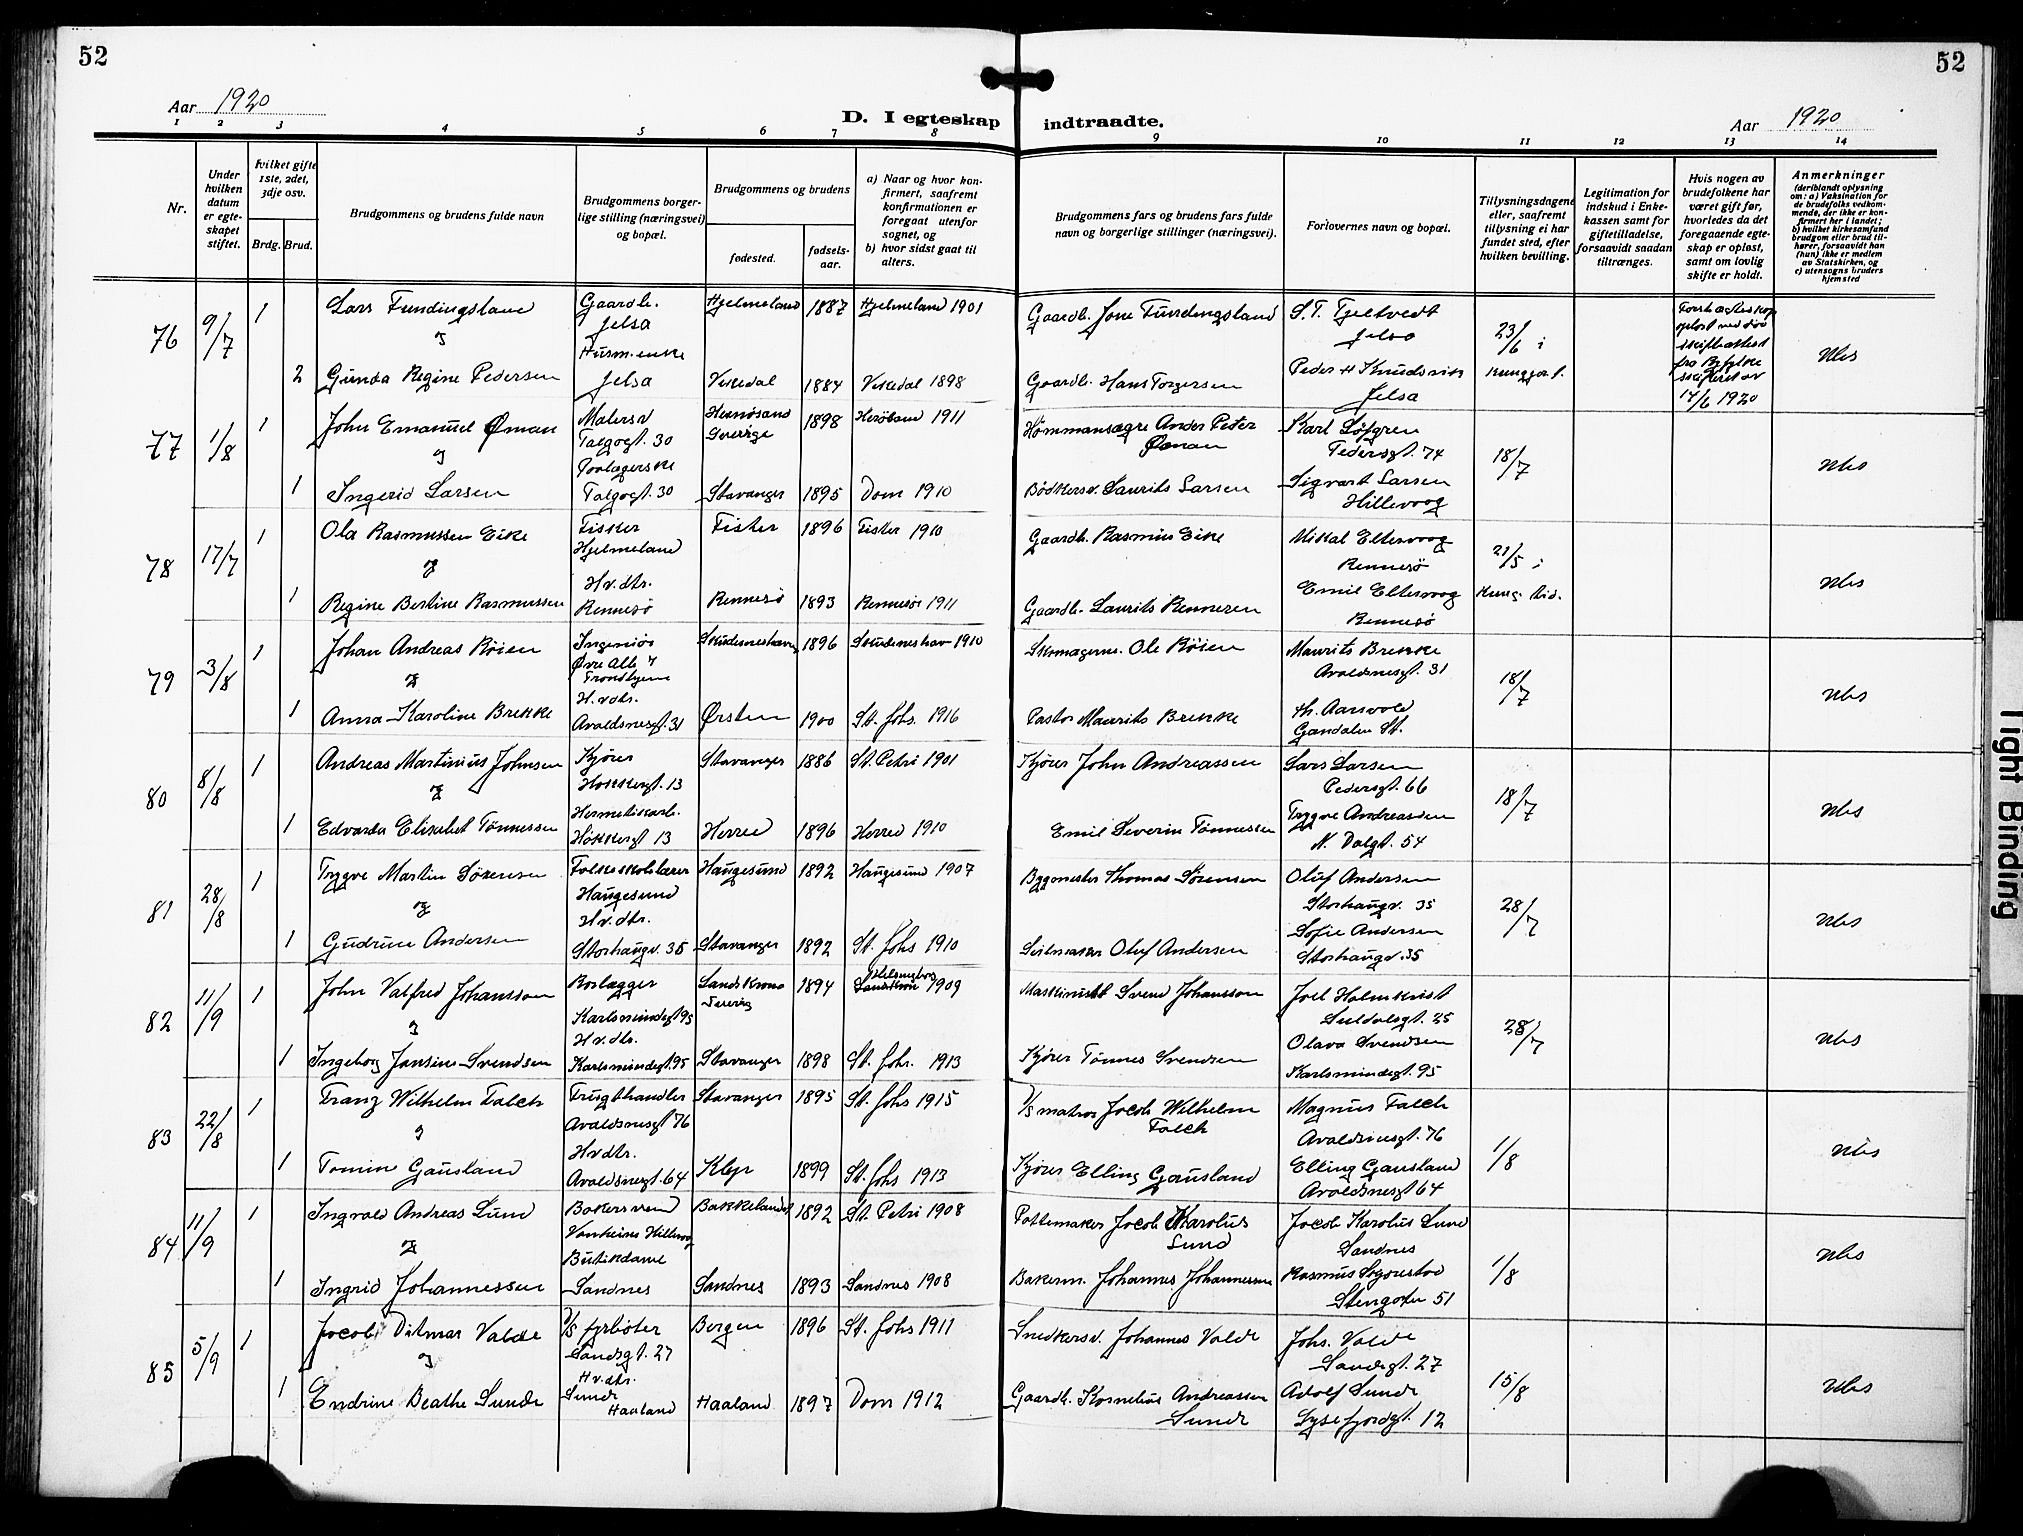 52
52
Aar 1920
D. I egteskap indtraadte.
Aar 1920
1 2 3 4 5 6 7 8 9 10 11 12 13 14
Nr.
Under hvilken datum er egte-skapet stiftet.
Hvilket gifte 1ste, 2det, 3dje osv.
Brdg. Brud.
Brudgommens og brudens fulde navn
Brudgommens borger-lige stilling (næringsvei) og bopæl.
Brudgommens og brudens
fødested.
fødsels-aar.
a) Naar og hvor kon-firmert, saafremt konfirmationen er foregaat utenfor sognet, og
b) hvor sidst gaat til alters.
Brudgommens fars og brudens fars fulde navn og borgerlige stillinger (næringsvei).
Forlovernes navn og bopæl.
Tillysningsdagene eller, saafremt tillysning ei har fundet sted, efter hvilken bevilling.
Legitimation for indskud i Enke-kassen samt for giftetilladelse, forsaavidt saadan tiltrænges.
Hvis nogen av brudefolkene har været gift før, hvorledes da det foregaaende egte-skap er opløst, samt om lovlig skifte er holdt.
Anmerkninger
(deriblandt oplysning om: a) Vaksination for de brudefolks vedkom-mende, der ikke er kon-firmert her i landet; b) hvilket kirkesamfund brudgom eller brud til-hører, forsaavidt han (hun) ikke er medlem av Statskirken, og c) utensogns bruders hjemsted
76 9/7 1 Lars Fundingsland Gaardb. Jelsa Hjelmeland 1887 Hjelmeland 1901 Gaardb. Jone Fundingsland S. T. Tjeltvedt Jelsa 23/6 i
og Husm.enke
2 Gunda Regine Pedersen Jelsa Vikedal 1884 Vikedal 1898 Gaardb. Hans Torgersen Peder H Knudsvik Jelsa
14/6 1920
77 1/8 1 John Emanuel Öman Malersv. 30 Hernösand Sverige 1898 1911 Anders Peter Öman Karl Löfgren Pedersgt. 74 18/7
og
1 Ingerid Larsen 30 Stavanger 1895 Dom 1910 Bödkersv. Laurits Larsen Sigvart Larsen Hillevaag
78 17/7 1 Ola Rasmussen Eike Fisker Hjelmeland Fister 1896 Fister 1910 Gaardb. Rasmus Eike Mikal Eltervaag Rennesö 21/5 i
og Hv. dtr.
1 Regine Bertine Rasmussen Rennesö Rennesö 1893 Rennesö 1911 Gaardb. Laurits Renneren Emil Eltervaag Rennesö
79 3/8 1 Johan Andreas Röisen Ingeniör Övre Alle 7 Trondhjem Skudeneshavn 1896 Skudeneshavn 1910 Skomagerm. Ole Röisen Maurits Brekke Avaldsnesgt. 31 18/7
og H.v.dtr.
1 Anna Karoline Brekke Avaldsnesgt. 31 Örsten 1900 St. Johs. 1916 Pastor Maurits Brekke Th. Aarsvold Gandalen St.
80 8/8 1 Andreas Martinius Johnsen Kjörer Hökkergt. 13 Stavanger 1886 St. Petri 1901 Kjörer John Andreassen Lars Larsen Pedersgt. 66 18/7
og Hermetikarb.
1 Edvarda Elisabet Tönnessen Hökkergt 13 Herred 1896 Herred 1910 Emil Severin Tönnessen Trygve Andreassen N. Dalgt. 54
81 28/8 1 Trygve Martin Sörensen Folkeskolelærer Haugesund Haugesund 1892 Haugesund 1907 Bygmester Thomas Sörensen Oluf Andersen Storhaugv. 35 28/7
og Hv. dtr.
1 Gudrun Andersen Storhaugv. 35 Stavanger 1892 St. Johs 1910 Seilmaker Oluf Andersen Sofie Andersen Storhaugv. 35
82 11/9 1 John Valfred Johansson Rörlægger Karlsmindegt 95 Landskrona Sverig 1894 Helsingborg 1909 Maskinist Svend Johansson Joel Holmkvist Suldalsgt. 25 28/7
og H.v. dtr.
1 Ingeborg Jansine Svendsen Karlsmindegt. 95 Stavanger 1898 St. Johs. 1913 Kjörer Tönnes Svendsen Olava Svendsen Karlsmindegt. 95
83 22/8 1 Franz Wilhelm Falch Frugthandler Avaldsnesgt 76 Stavanger 1895 St. Johs 1915 D/S matros Jocob Wilhelm Falch Magnus Falch Avaldsnesgt. 76 1/8
og Hv dtr.
1 Tomine Gausland Avaldsnesgt. 64 Klep 1899 St. Johs 1913 Kjörer Elling Gausland Elling Gausland Avaldsnesgt 64
84 11/9 1 Ingvald Andreas Lund Bakersvend Hillevaag Bakkelandet 1892 St. Petri 1908 Pottemaker Jocob Karolius Lund Jocob Karolius Lund Sandnes 1/8
og Butikdame
1 Ingrid Johannessen Sandnes Sandnes 1893 Sandnes 1908 Bakerm. Johannes Johannessen Rasmus 51
85 5/9 1 Jocob Ditmar Valde D/S fyrböter Sandsgt. 27 Bergen 1896 St. Johs 1911 Snedkersv. Johannes Valde Johs. Valde Sandsgt. 27 15/8
og Hv. dtr.
1 Endrine Beathe Sunde Sunde Haaland Haaland 1897 Dom 1912 Gaardb. Kornelius Andreassen Sunde Adolf Sunde Lysefjordgt. 12
Tight Binding